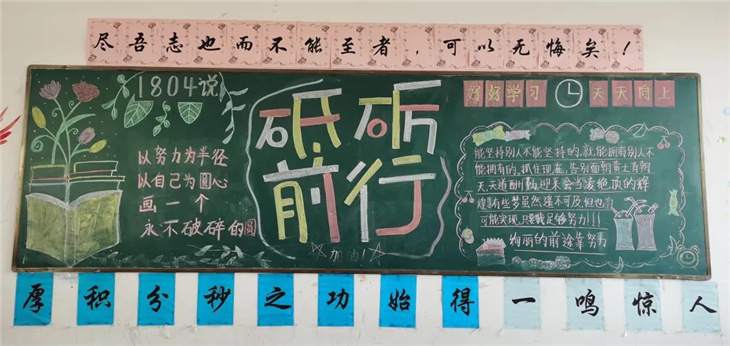 尽吾志也而不能至者，可以无悔矣！
1804说
以努力为半径
以自己为圆心
画一个
永不破碎的圆
砥砺
前行
加油！
好好学习 天天向上
能坚持别人不能坚持的,就能拥有别人不
能拥有的，抓住现在，告别面朝黄土背朝
天,天道酬勤,迎来会当凌绝顶的辉
煌,有些梦虽然遥不可及,但也
可能实现,只要我足够努力!!!
绚丽的前途靠努力
厚积分秒之功始得一鸣惊人